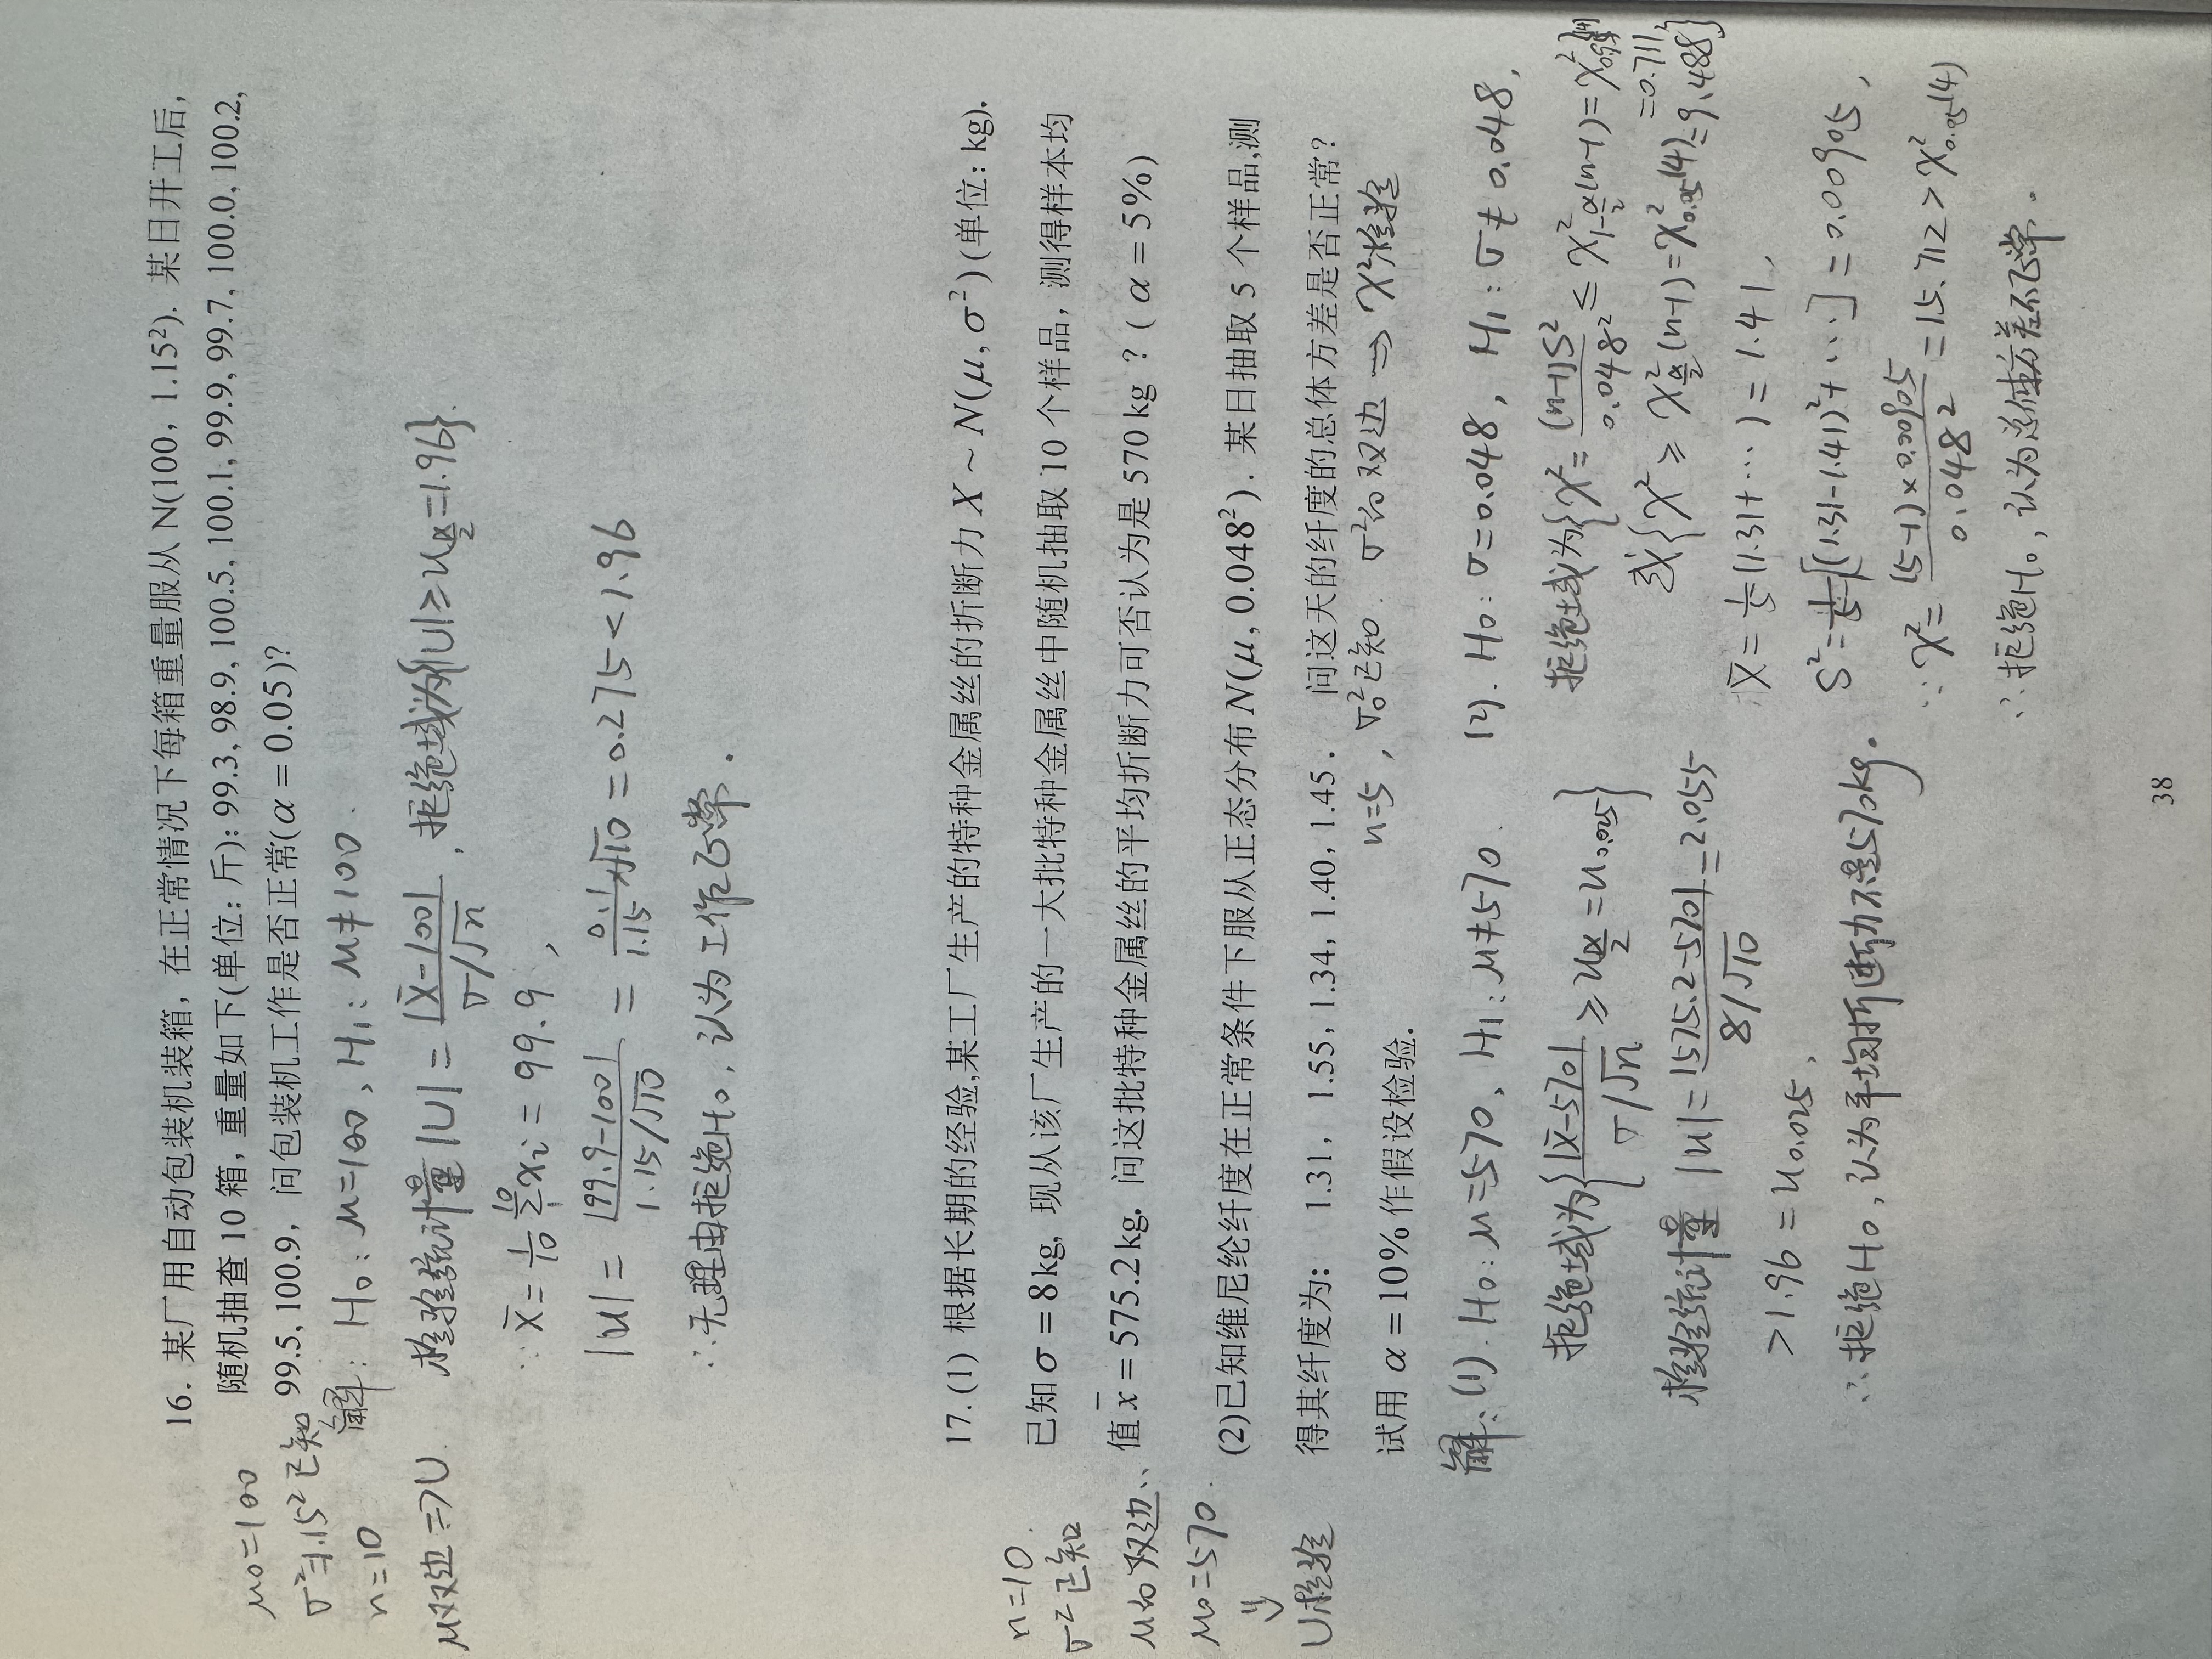 16. 某厂用自动包装机装箱，在正常情况下每箱重量服从 N(100，1.15²). 某日开工后，
随机抽查 10 箱，重量如下(单位：斤)：99.3, 98.9, 100.5, 100.1, 99.9, 99.7, 100.0, 100.2,
99.5, 100.9，问包装机工作是否正常(α = 0.05)?
μ0=100
σ²=1.15²已知
n=10
μ双边 => U
解: H₀: μ=100, H₁: μ≠100.
检验统计量|U| = |x̄-100| / (σ/√n), 拒绝域为{|U| ≥ u_{α/2} = 1.96}.
∵ x̄ = 1/10 Σ₁¹⁰ xᵢ = 99.9,
|u| = |99.9-100| / (1.15/√10) = 0.1/1.15 × √10 = 0.275 < 1.96
∴无理由拒绝H₀, 认为工作正常.
17. (1) 根据长期的经验,某工厂生产的特种金属丝的折断力 X ~ N(μ, σ²) (单位: kg).
已知 σ = 8 kg, 现从该厂生产的一大批特种金属丝中随机抽取 10 个样品，测得样本均
值 x̄ = 575.2 kg. 问这批特种金属丝的平均折断力可否认为是 570 kg ? ( α = 5%)
n=10.
σ²已知
μ的双边..
μ0=570.
⇓
U检验
(2)已知维尼纶纤度在正常条件下服从正态分布 N(μ, 0.048²). 某日抽取 5 个样品,测
得其纤度为： 1.31， 1.55, 1.34, 1.40, 1.45 . 问这天的纤度的总体方差是否正常?
n=5, σ₀²已知. σ²的双边 → χ²检验
试用 α = 10% 作假设检验.
解: (1). H₀: μ=570, H₁: μ≠570.
拒绝域为{|x̄-570| / (σ/√n) ≥ u_{α/2} = u_{0.025}}
检验统计量 |u| = |575.2-570| / (8/√10) = 2.055
>1.96 = u_{0.025},
∴拒绝H₀, 认为平均折断力不是570kg.
(2). H₀: σ=0.048, H₁: σ≠0.048,
拒绝域为{χ² = (n-1)S² / 0.048² ≤ χ²_{1-α/2}(n-1) = χ²_{0.95}(4)
=0.711,
或{χ² ≥ χ²_{α/2}(n-1) = χ²_{0.05}(4) = 9.488}
x̄ = 1/5 (1.31+⋯) = 1.41,
S² = 1/(5-1) [(1.31-1.41)²+⋯] = 0.00905,
∵ χ² = (5-1)×0.00905 / 0.048² = 15.712 > χ²_{0.05}(4)
∴拒绝H₀, 认为总体方差不正常.
38